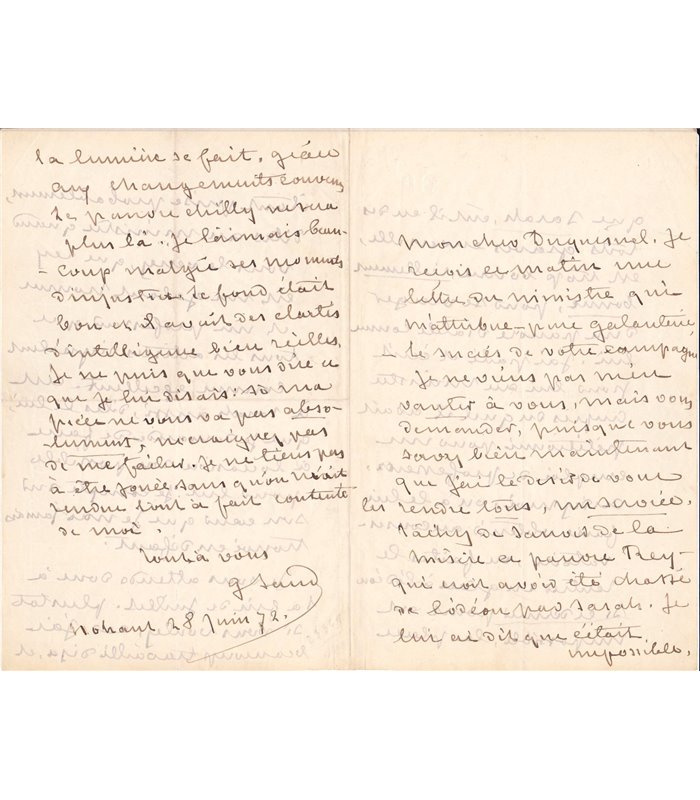 Mon cher Duquesnel. Je
reçois ce matin une
lettre du ministre qui
m'attribue par galanterie
le succès de votre campagne
Je ne viens pas m'en
vanter à vous, mais vous
demander, puisque vous
savez bien maintenant
que j'ai le desir de vous
les rendre tous, un service.
tâchez de sauver de la
misère ce pauvre Rey
qui croit avoir été chassé
de l'odéon par Sarah. Je
lui ai dit que c'était
impossible,
la lumière se fait, grâce
aux changements
le pauvre Chilly ne sera
plus là. Je l'aimais beau-
-coup malgré ses moments
d'injustice le fond était
bon et il avait des clartés
d'intelligence bien réelles,
Je ne puis que vous dire ce
que je lui disais: si ma
pièce ne vous va pas abso-
lument, ne craignez pas
de me facher. Je ne tiens pas
à être jouée sans qu'on
tout à fait contente
de moi.
tout à vous
g. Sand
Nohant 28 Juin 72.